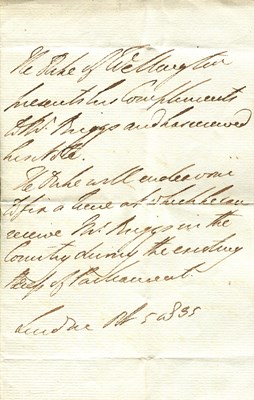 The Duke of Wellington
presents his Compliments
to Mr. Briggs and has received
his Note.
The Duke will endeavour
to fix a time at which he can
receive Mr. Briggs in the
Country during the ensuing
of Parliament.
London 5 1835